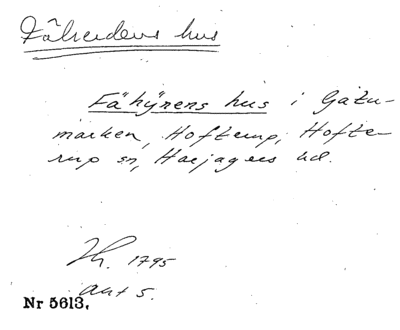 Fäherdens hus
Fähyrens hus i Gatu-
marken, Hofterup, Hofte-
rup sn, Harjagers hd.
Th. 1795
ant 5.
Nr 5613,